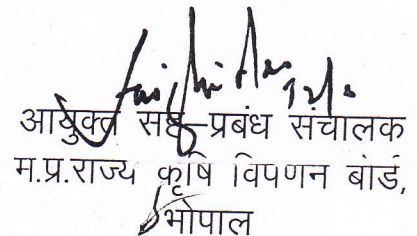 आयुक्त सह–प्रबंध संचालक
म.प्र.राज्य कृषि विपणन बोर्ड,
भोपाल